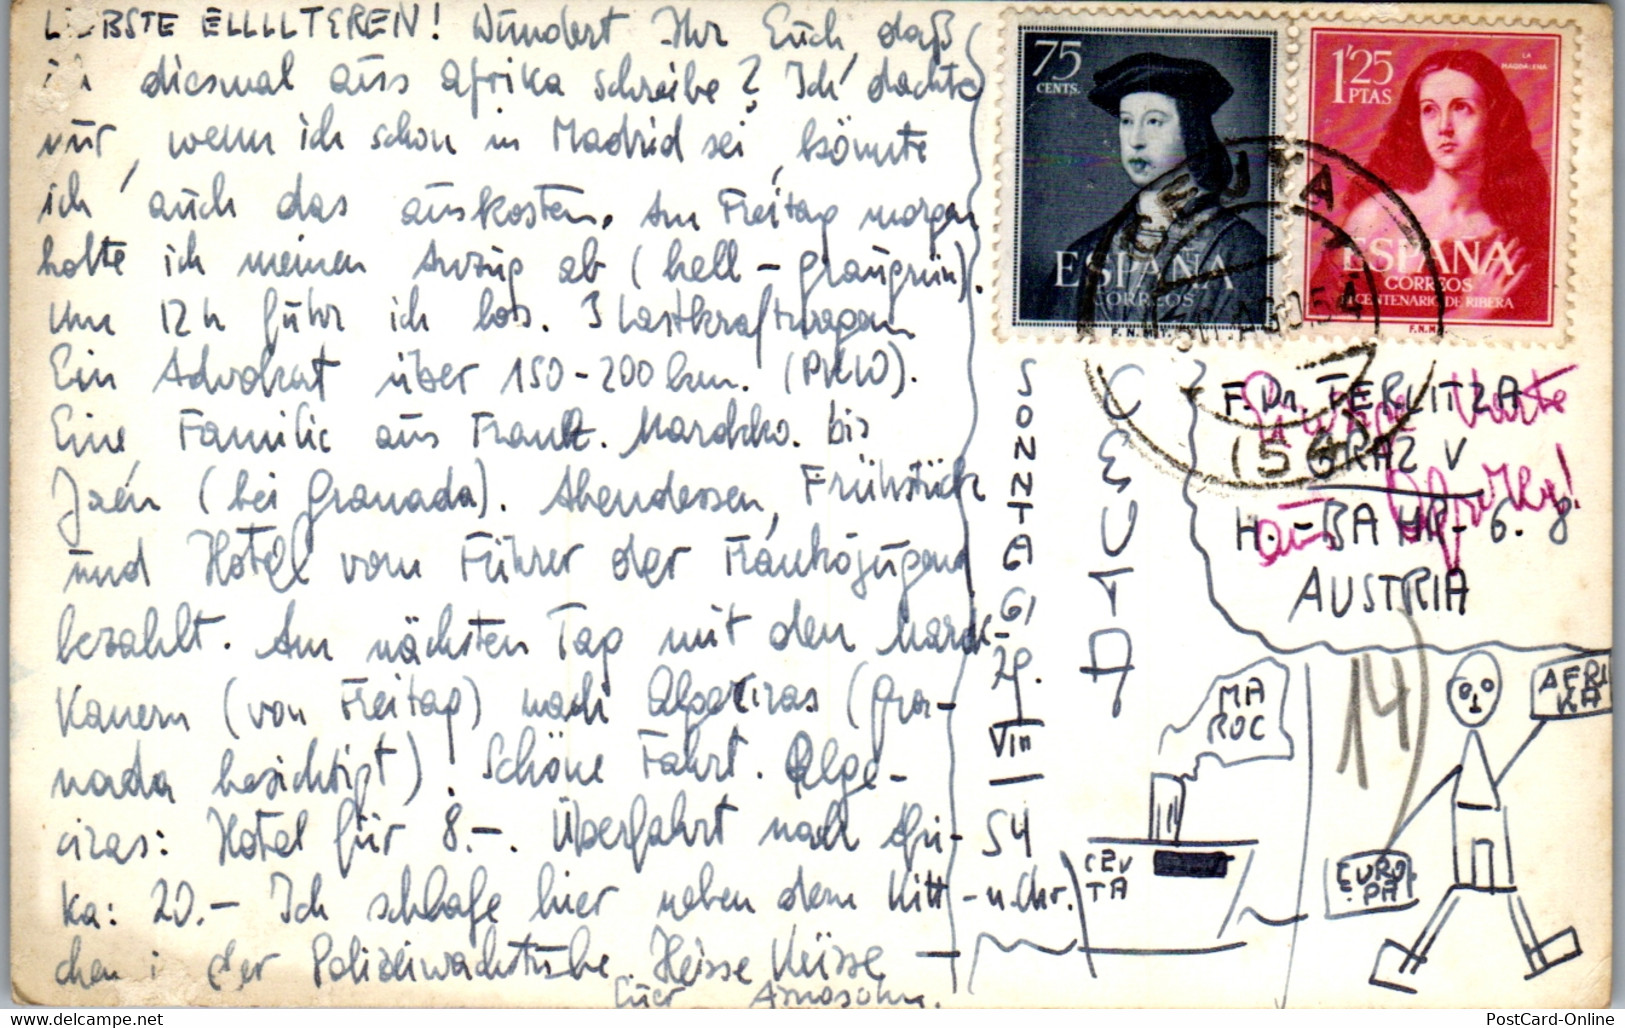 LIEBSTE ELLLLTEREN! Wundert Ihr Euch, daß
ich diesmal aus Afrika schreibe? Ich dachte
nur, wenn ich schon in Madrid sei, könnte
ich auch das auskosten. Am Freitag morgen
holte ich meinen Anzug ab (hell-graugrün).
Um 12 h fuhr ich los. 3 Lastkraftwagen
Ein Advokat über 150-200 km. (PKW).
Eine Familie aus Frankr. Marokko. bis
Jaén (bei Granada). Abendessen, Frühstück
und Hotel vom Führer der Frankojugend
bezahlt. Am nächsten Tag mit den Marok-
kanern (von Freitag) nach Algeciras (Gra-
nada besichtigt)! Schöne Fahrt. Alge-
ciras: Hotel für 8.-. Überfahrt nach Afri-
ka: 20.- Ich schlafe hier neben dem Kitt-
chen i. der Polizeiwachstube. Heisse Küsse
Euer Arnosohn.
SONNTAG
29.
VIII
54
CEUTA
75
CENTS.
ESPAÑA
CORREOS
F.N.M.T.
LA MAGDALENA
1'25
PTAS
ESPAÑA
CORREOS
CENTENARIO DE RIBERA
F.N.M.
CEUTA
30.AGO.54
F. Dr. TERLITZA
GRAZ V
H.-BAHN- 6. 8
AUSTRIA
Karte
aus Afrika!
14)
MA
ROC
CEU
TA
AFRI
KA
EURO
PA
PostCard-Online